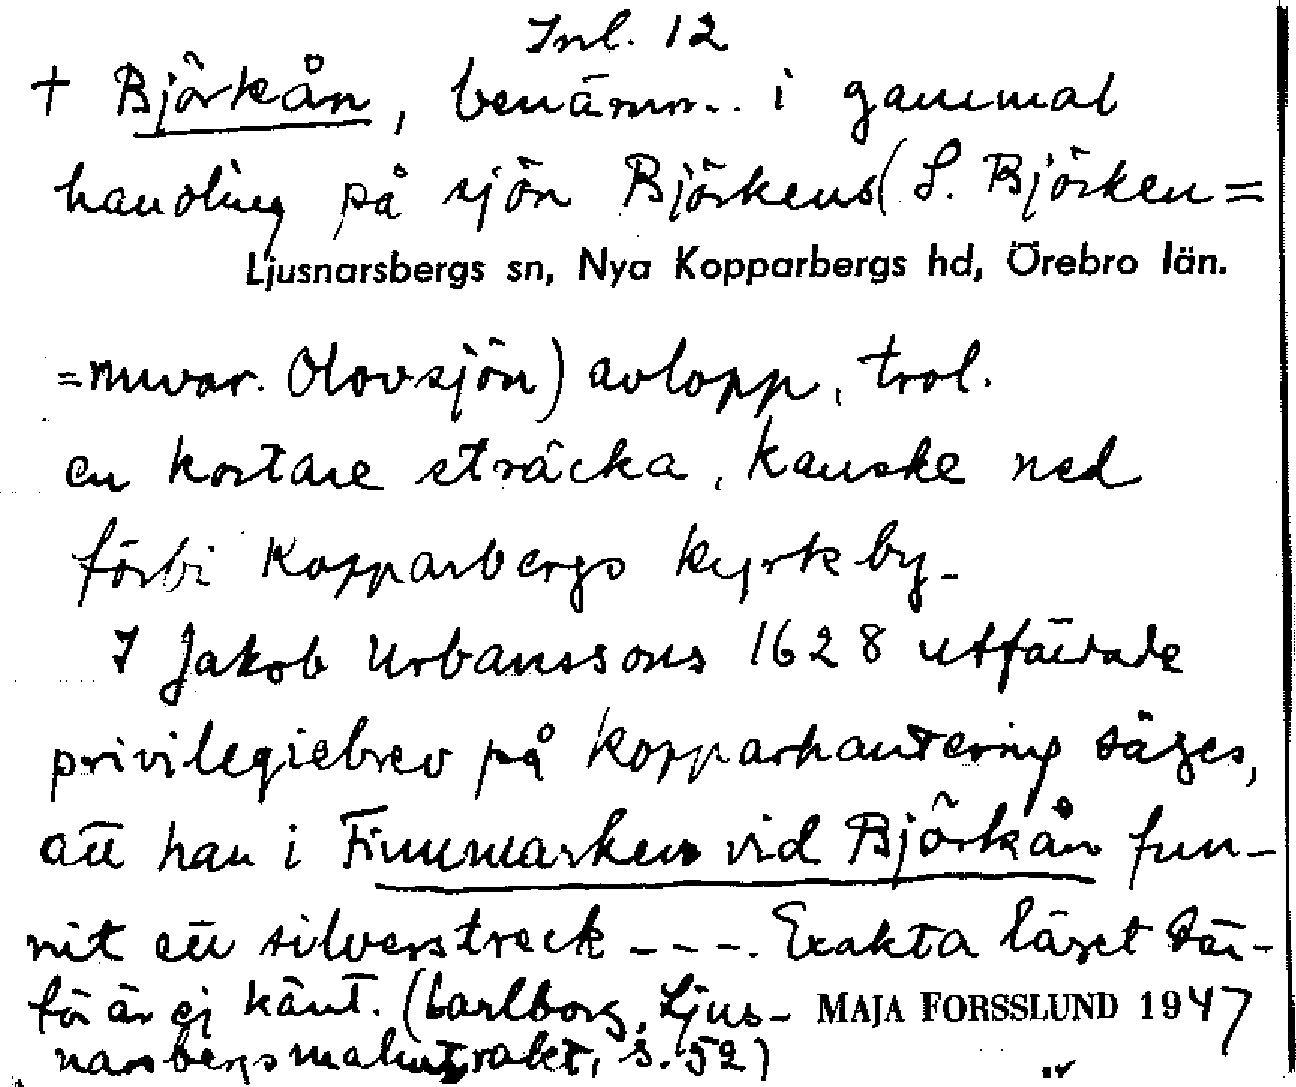 Inl. 12
+ Björkån, benämn.. i gammal
handling på sjön Björkens (L. Björken=
Ljusnarsbergs sn, Nya Kopparbergs hd, Örebro län.
=nuvar. Olovsjön) avlopp, trol.
en kortare sträcka, kanske ned
förbi Kopparbergs kyrkby-
I Jakob Urbanssons 1628 utfärdade
privilegiebrev på kopparhantering säges,
att han i Finnmarken vid Björkån fun-
nit ett silverstreck - - - -. Exakta läget där-
för är ej känt. (Carlborg, Ljus-
narsbergs malmtrakt, s. 52)
MAJA FORSSLUND 1947